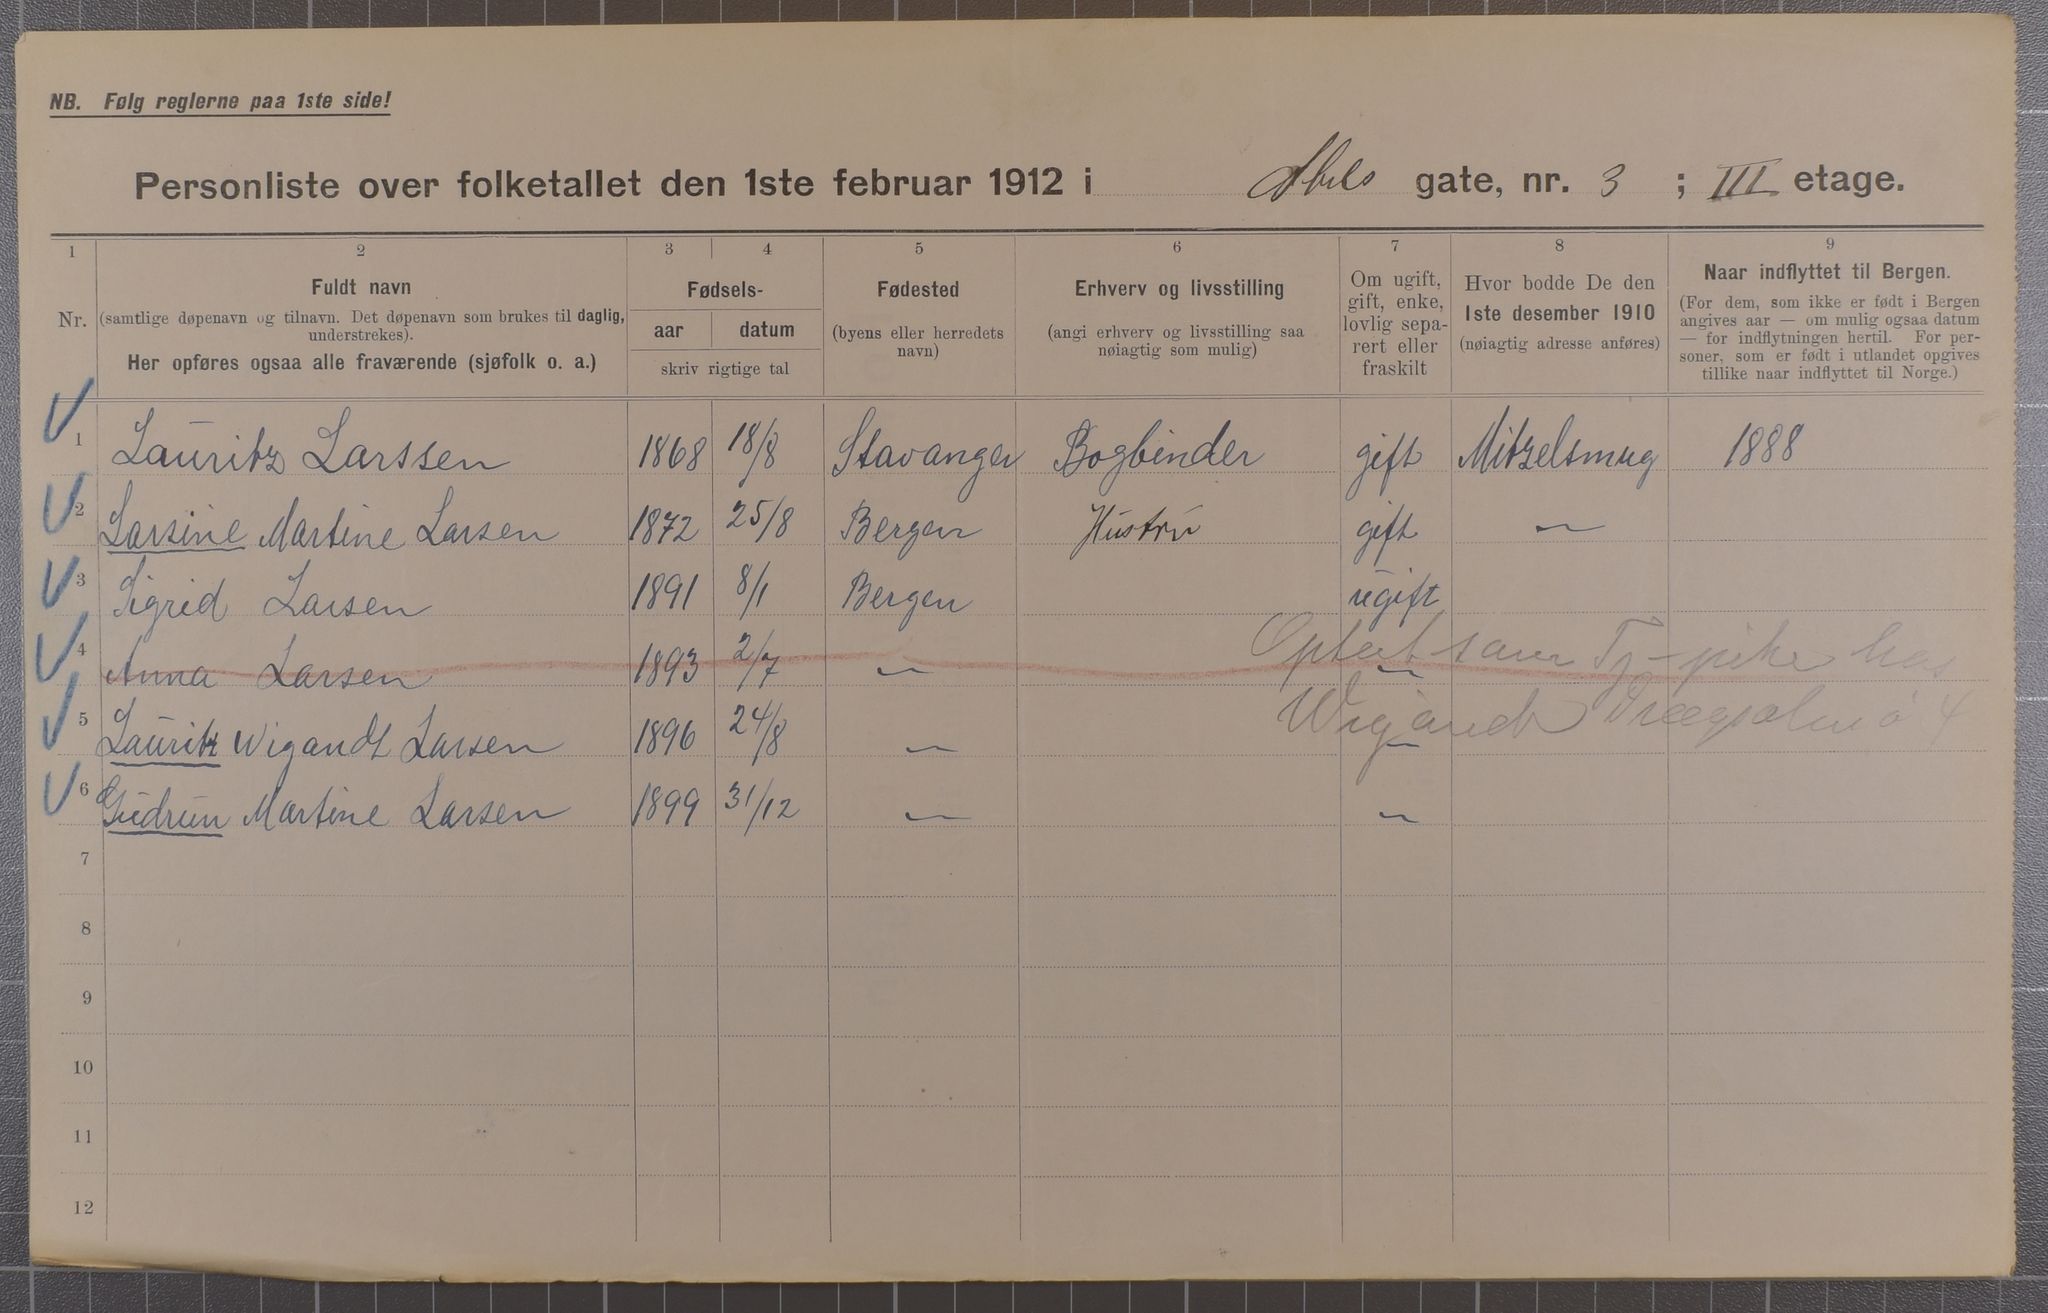 NB. Følg reglerne paa 1ste side!
Personliste over folketallet den 1ste februar 1912 i Abels gate, nr. 3 ; III etage.
1 2 3 4 5 6 7 8 9
Nr. Fuldt navn (samtlige døpenavn og tilnavn. Det døpenavn som brukes til daglig, understrekes). Her opføres ogsaa alle fraværende (sjøfolk o. a.)
Fødsels- aar datum skriv rigtige tal
Fødested (byens eller herredets navn)
Erhverv og livsstilling (angi erhverv og livsstilling saa nøiagtig som mulig)
Om ugift, gift, enke, lovlig sepa- rert eller fraskilt
Hvor bodde De den 1ste desember 1910 (nøiagtig adresse anføres)
Naar indflyttet til Bergen. (For dem, som ikke er født i Bergen angives aar — om mulig ogsaa datum — for indflytningen hertil. For per- soner, som er født i utlandet opgives tillike naar indflyttet til Norge.)
1 Lauritz Larssen 1868 18/8 Stavanger Bogbinder gift Mitzelsmug 1888
2 Larsine Martine Larsen 1872 25/8 Bergen Hustru gift —
3 Sigrid Larsen 1891 8/1 Bergen ugift
4 Anna Larsen 1893 2/7 — —
Optat som Tj-pike hos
5 Lauritz Wigandt Larsen 1896 24/8 — —
Wigandt 4
6 Gudrun Martine Larsen 1899 31/12 — —
7
8
9
10
11
12